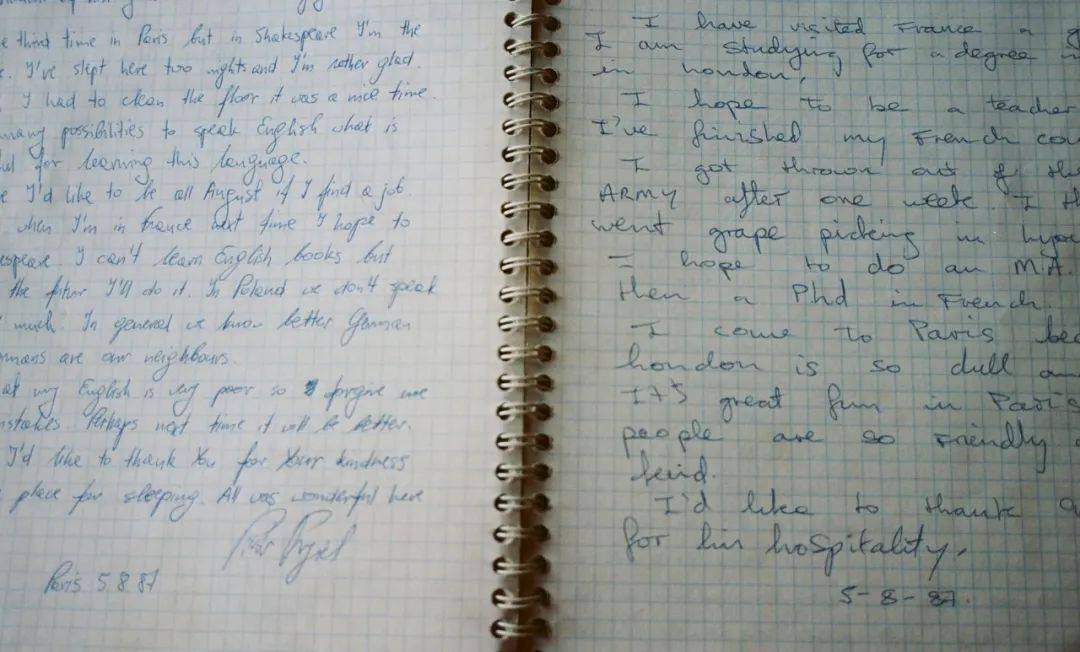 e third time in Paris but in Shakespeare I'm the
e. I've slept here two nights and I'm rather glad.
I had to clean the floor it was a nice time.
many possibilities to speak English what is
ful for learning this language.
e I'd like to be all August if I find a job.
when I'm in France next time I hope to
espeare. I can't learn English books but
the futur I'll do it. In Poland we don't speak
much. In general we know better German
rmans are our neighbours.
at my English is very poor so forgive me
mistakes. Perhaps next time it will be better.
I'd like to thank You for Your kindness
place for sleeping. All was wonderful here
Paris 5.8.87
I have visited France a g
I am studying for a degree in
in London.
I hope to be a teacher
I've finished my French cou
I got thrown out of the
ARMY after one week. I th
went grape picking in
I hope to do an M.A.
then a Phd in French.
I come to Paris bec
London is so dull an
It's great fun in Paris
people are so friendly a
kind.
I'd like to thank G
for his hospitality.
5-8-87.